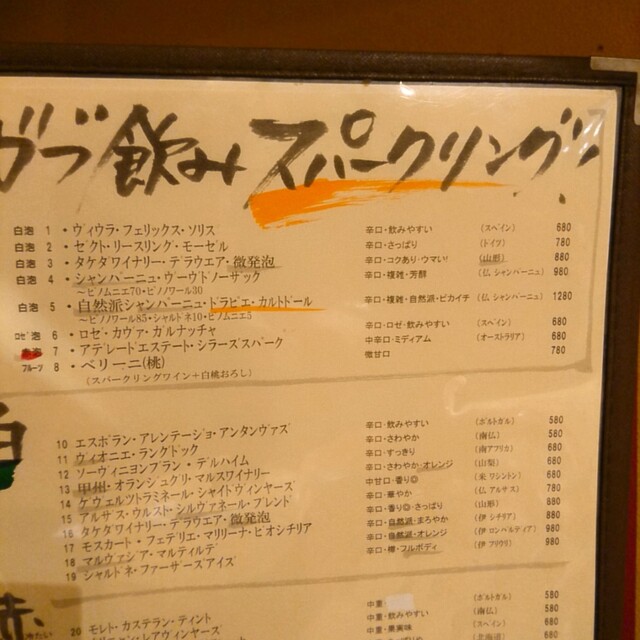 がぶ飲みスパークリング!
白泡 1 ・ヴィウラ・フェリックス・ソリス 辛口・飲みやすい (スペイン) 680
白泡 2 ・ゼクト・リースリング・モーゼル 辛口・さっぱり (ドイツ) 780
白泡 3 ・タケダワイナリー・デラウエア・微発泡 辛口・コクあり・ウマい! (山形) 880
白泡 4 ・シャンパーニュ・ヴーヴドノーサック 辛口・複雑・芳醇 (仏 シャンパーニュ) 980
~ピノムニエ70・ピノノワール30
白泡 5 ・自然派シャンパーニュ・ドラピエ・カルトドール 辛口・複雑・自然派・ピカイチ (仏 シャンパーニュ) 1280
~ピノノワール85・シャルドネ10・ピノムニエ5
ロゼ泡 6 ・ロゼ・カヴァ・ガルナッチャ 辛口・ロゼ・飲みやすい (スペイン) 680
7 ・アデレードエステート・シラーズスパーク 中辛口・ミディアム (オーストラリア) 680
フルーツ 8 ・ベリーニ(桃) 微甘口 780
(スパークリングワイン+白桃おろし)
白
10 エスポラン・アレンテージョ・アンタンヴァズ 辛口・飲みやすい (ポルトガル) 580
11 ヴィオニエ・ラングドック 辛口・さわやか (南仏) 580
12 ソーヴィニヨンブラン・デルハイム 辛口・すっきり (南アフリカ) 680
13 甲州・オランジュグリ・マルスワイナリー 辛口・さわやか・オレンジ (山梨) 680
14 ゲヴェルツトラミネール・シャイトヴィンヤーズ 中甘口・香り◎ (米 ワシントン) 680
15 アルザス・ウルスト・シルヴァネール・ブレンド 辛口・華やか (仏 アルザス) 780
16 タケダワイナリー・デラウエア・微発泡 辛口・香り◎・さっぱり (山形) 880
17 モスカート・フェデリエ・マリリーナ・ビオシチリア 辛口・自然派・まろやか (伊 シチリア) 880
18 マルヴァシア・マルティルデ 辛口・自然派・オレンジ (伊 ロンバルディア) 980
19 シャルドネ・ファーザーズアイズ 辛口・樽・フルボディ (伊 フリウリ) 980
20 モレト・カステラン・ティント 中重 (ポルトガル) 580
中重・飲みやすい (南仏) 580
中重・果実味 (スペイン) 680
(北海道) 680